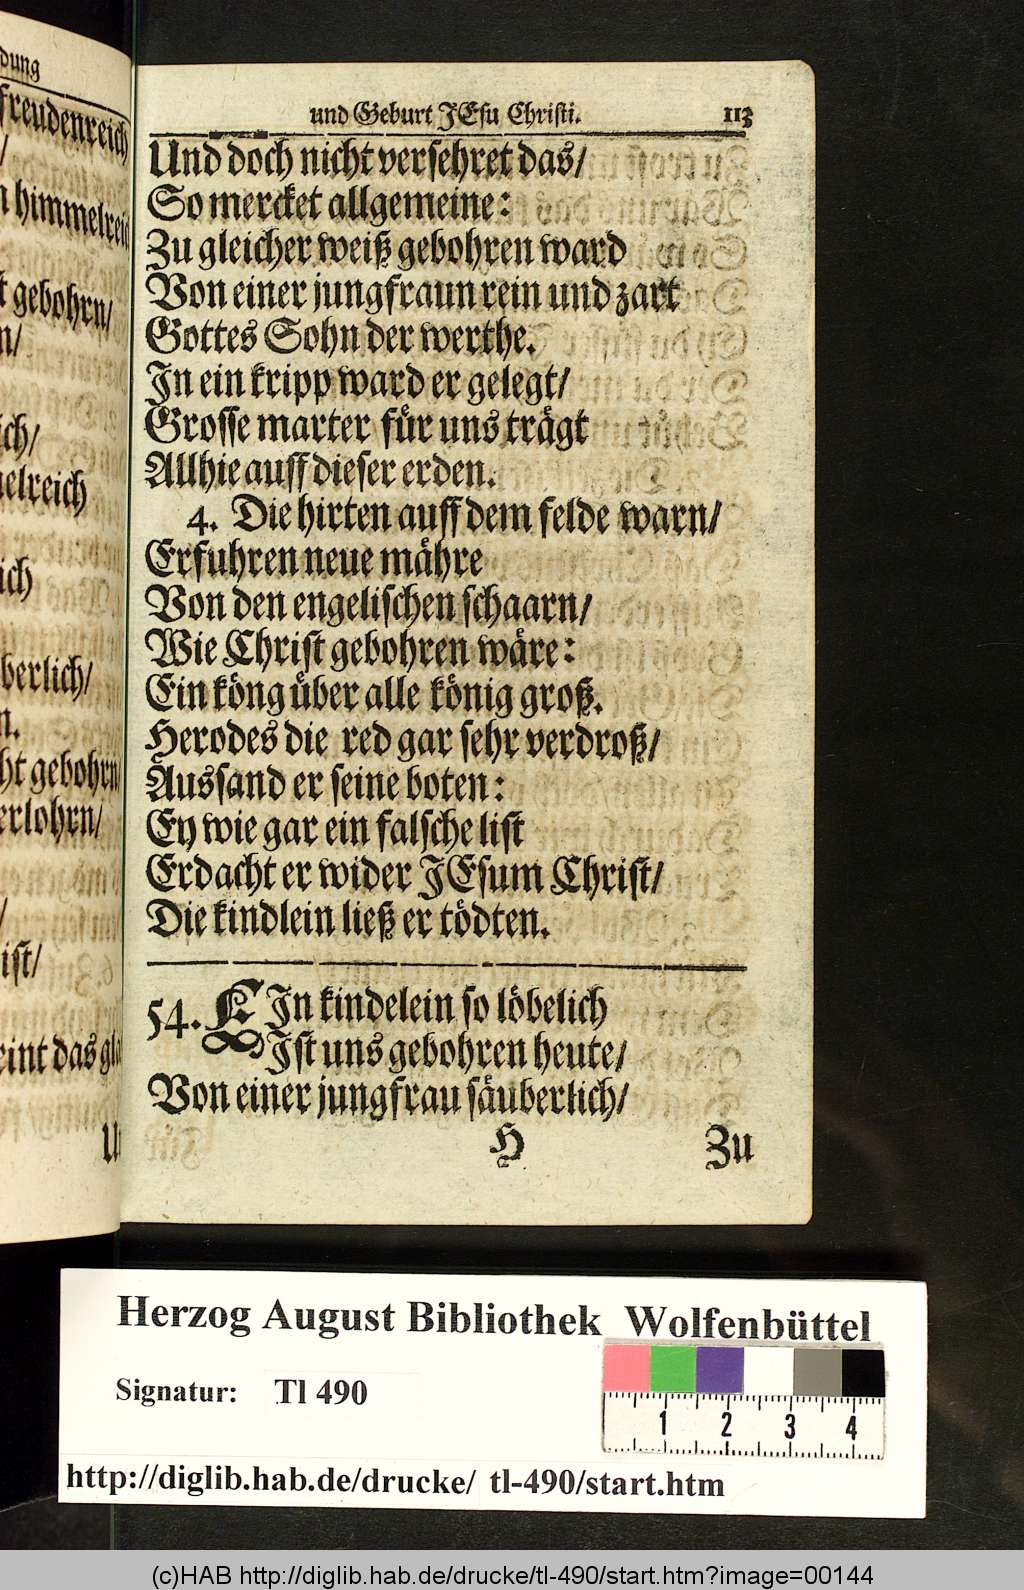 dung
freudenreich
/
himmelreich
gebohrn/
n/
ich/
melreich
ich
berlich/
n.
ht gebohrn
erlohrn/
/
ist/
eint das gla
U
und Geburt JEsu Christi. 113
Und doch nicht versehret das/
So mercket allgemeine:
Zu gleicher weiß gebohren ward
Von einer jungfraun rein und zart
Gottes Sohn der werthe.
In ein kripp ward er gelegt/
Grosse marter für uns trägt
Allhie auff dieser erden.
4. Die hirten auff dem felde warn/
Erfuhren neue mähre
Von den engelischen schaarn/
Wie Christ gebohren wäre:
Ein köng über alle könig groß.
Herodes die red gar sehr verdroß/
Aussand er seine boten:
Ey wie gar ein falsche list
Erdacht er wider JEsum Christ/
Die kindlein ließ er tödten.
54. EIn kindelein so löbelich
Ist uns gebohren heute/
Von einer jungfrau säuberlich/
H Zu
Herzog August Bibliothek Wolfenbüttel
Signatur: Tl 490
1 2 3 4
http://diglib.hab.de/drucke/ tl-490/start.htm
(c)HAB http://diglib.hab.de/drucke/tl-490/start.htm?image=00144